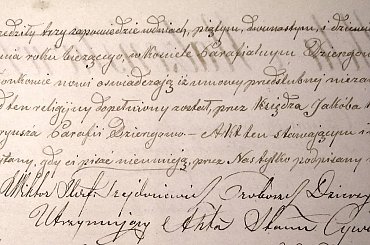 rzedziły trzy zapowiedzie w dniach, piątym, dwunastym, i dziewi
nia roku bieżącego, w kościele Parafialnym Dziergow
onkowie nowi oswiadczają iż umowy przedslubnej nieza
d ten religijny dopełniony został, przez Księdza Jakóba
ryusza Parafii Dziergowo — Akt ten stawającym i
ytany, gdy ci pisac nieumieją, przez Nas tylko podpisany
Wiktor Proboszcz Dzierz
Utrzymujący Akta Stanu Cywi